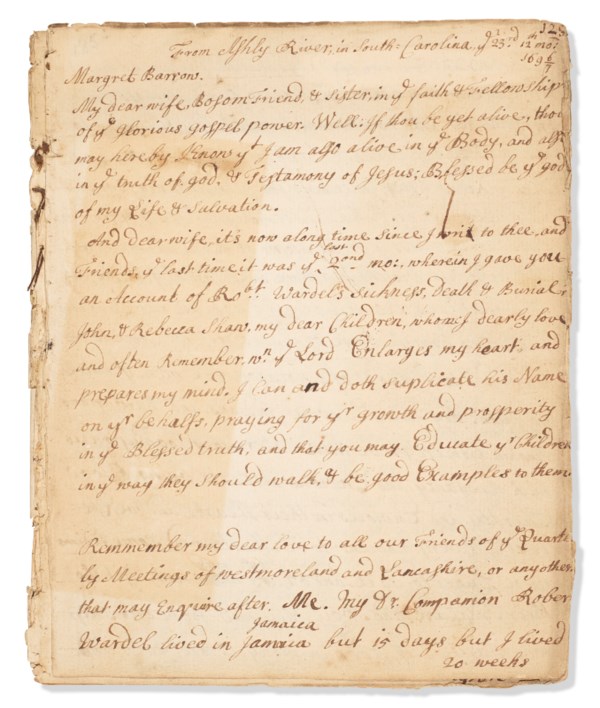 From Ashly River, in South=Carolina yᵉ 23:ʳᵈ 12 mo:
169 6/7
Margret Barrow.
My dear wife, Bosom Friend, & Sister, in yᵉ faith & Fellowship
of yᵉ glorious gospel power. Well: If thou be yet alive, thou
may hereby Know yᵗ I am also alive in yᵉ Body, and also
in yᵉ truth of god, & Testamony of Jesus; Blessed be yᵉ god
of my Life & Salvation.
And dear wife, it's now along time since I writ to thee, and
Friends, yᵉ last time it was yᵉ last 2ⁿᵈ mo:, wherein I gave you
an Account of Roᵇᵗ Wardel's Sickness, Death & Burial:
John, & Rebecca Shaw, my dear Children, whom I dearly love
and often Remember, wⁿ yᵉ Lord Enlarges my heart, and
prepares my mind, I Can and doth suplicate his Name
on yʳ behalfs, praying for yʳ growth and prosperity
in yᵉ Blessed truth, and that you may Educate yʳ Children
in yᵉ way they should walk, & be good Examples to them.
Remmember my dear love to all our Friends of yᵉ Quarte
ly Meetings of westmoreland and Lancashire, or any other
that may Enquire after. Me. My Dʳ. Companion Rober
Jamaica
Wardel lived in Jamica but 15 days but I lived
20 weeks